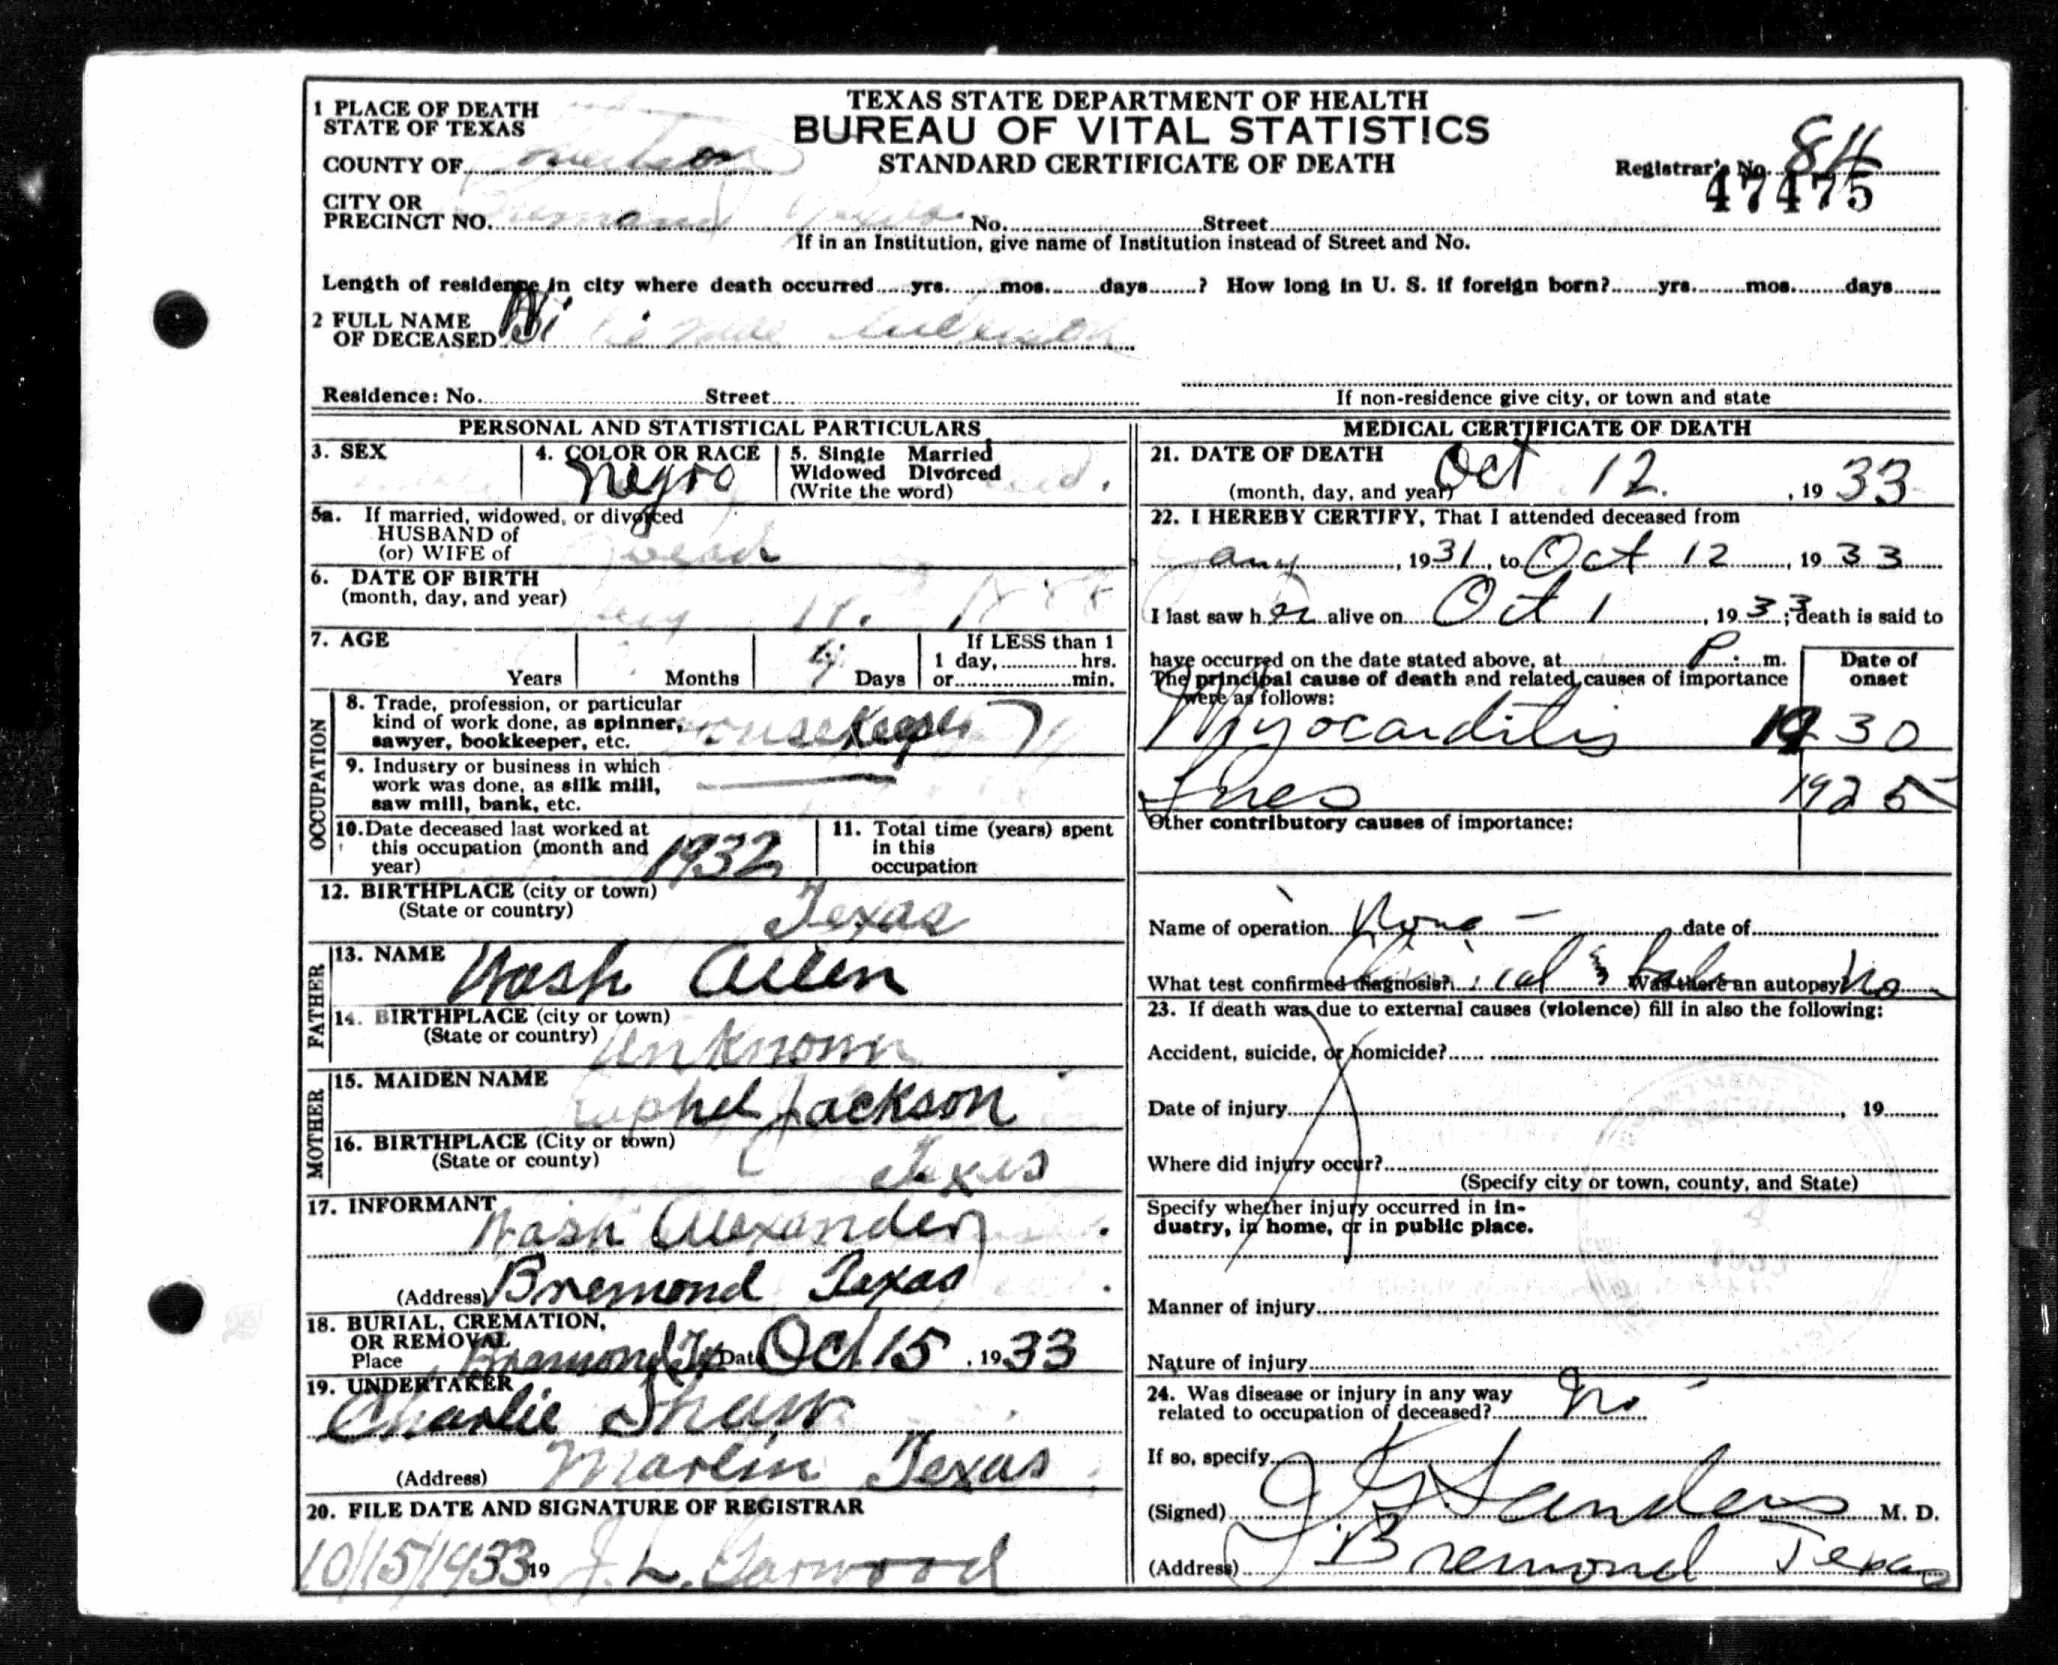 TEXAS STATE DEPARTMENT OF HEALTH
BUREAU OF VITAL STATISTICS
STANDARD CERTIFICATE OF DEATH
1 PLACE OF DEATH
STATE OF TEXAS
COUNTY OF
Registrar's No. 84
47475
CITY OR
PRECINCT NO. Texas No. Street
If in an Institution, give name of Institution instead of Street and No.
Length of residence in city where death occurred yrs. mos. days ? How long in U. S. if foreign born? yrs. mos. days
2 FULL NAME
OF DECEASED
Residence: No. Street
If non-residence give city, or town and state
PERSONAL AND STATISTICAL PARTICULARS
3. SEX
4. COLOR OR RACE
negro
5. Single Married
Widowed Divorced
(Write the word)
5a. If married, widowed, or divorced
HUSBAND of
(or) WIFE of
6. DATE OF BIRTH
(month, day, and year)
7. AGE
Years Months Days
If LESS than 1
1 day, hrs.
or min.
OCCUPATION
8. Trade, profession, or particular
kind of work done, as spinner,
sawyer, bookkeeper, etc.
housekeeper
9. Industry or business in which
work was done, as silk mill,
saw mill, bank, etc.
10. Date deceased last worked at
this occupation (month and
year) 1932
11. Total time (years) spent
in this
occupation
12. BIRTHPLACE (city or town)
(State or country) Texas
FATHER
13. NAME Wash Allen
14. BIRTHPLACE (city or town)
(State or country) Unknown
MOTHER
15. MAIDEN NAME
Jackson
16. BIRTHPLACE (City or town)
(State or county) Texas
17. INFORMANT
Wash Alexander
(Address) Bremond Texas
18. BURIAL, CREMATION,
OR REMOVAL
Place Bremond Tex Date Oct 15, 1933
19. UNDERTAKER
Charlie Shaw
(Address) Marlin Texas
20. FILE DATE AND SIGNATURE OF REGISTRAR
10/15/1933 19 J. L. Garwood
MEDICAL CERTIFICATE OF DEATH
21. DATE OF DEATH
(month, day, and year) Oct 12, 1933
22. I HEREBY CERTIFY, That I attended deceased from
Jany, 1931, to Oct 12, 1933
I last saw her alive on Oct 1, 1933; death is said to
have occurred on the date stated above, at P. m.
The principal cause of death and related causes of importance
were as follows:
Date of
onset
Myocarditis 1930
Lues 1925
Other contributory causes of importance:
Name of operation None date of
What test confirmed diagnosis? Clinical & Lab Was there an autopsy? No
23. If death was due to external causes (violence) fill in also the following:
Accident, suicide, or homicide?
Date of injury , 19
Where did injury occur?
(Specify city or town, county, and State)
Specify whether injury occurred in in-
dustry, in home, or in public place.
Manner of injury
Nature of injury
24. Was disease or injury in any way
related to occupation of deceased? No
If so, specify
(Signed) Sanders M. D.
(Address) Bremond Texas